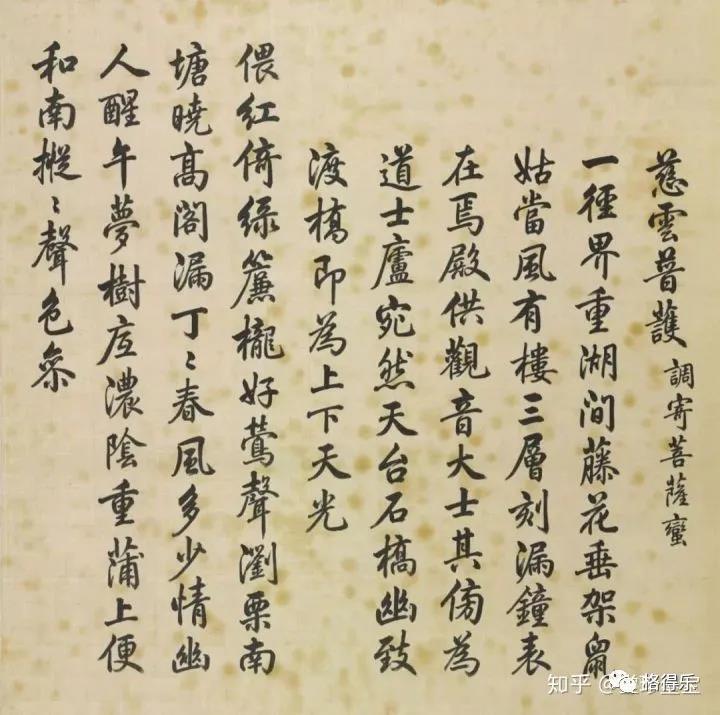 慈雲普護 調寄菩薩蠻
一徑界重湖間藤花垂架鼠
姑當風有樓三層刻漏鐘表
在焉殿供觀音大士其傍為
道士廬宛然天台石橋幽致
渡橋即為上下天光
偎紅倚綠簾櫳好鶯聲瀏栗南
塘曉高閣漏丁〻春風多少情幽
人醒午夢樹底濃陰重蒲上便
和南摐〻聲色叅
知乎
珞得乐